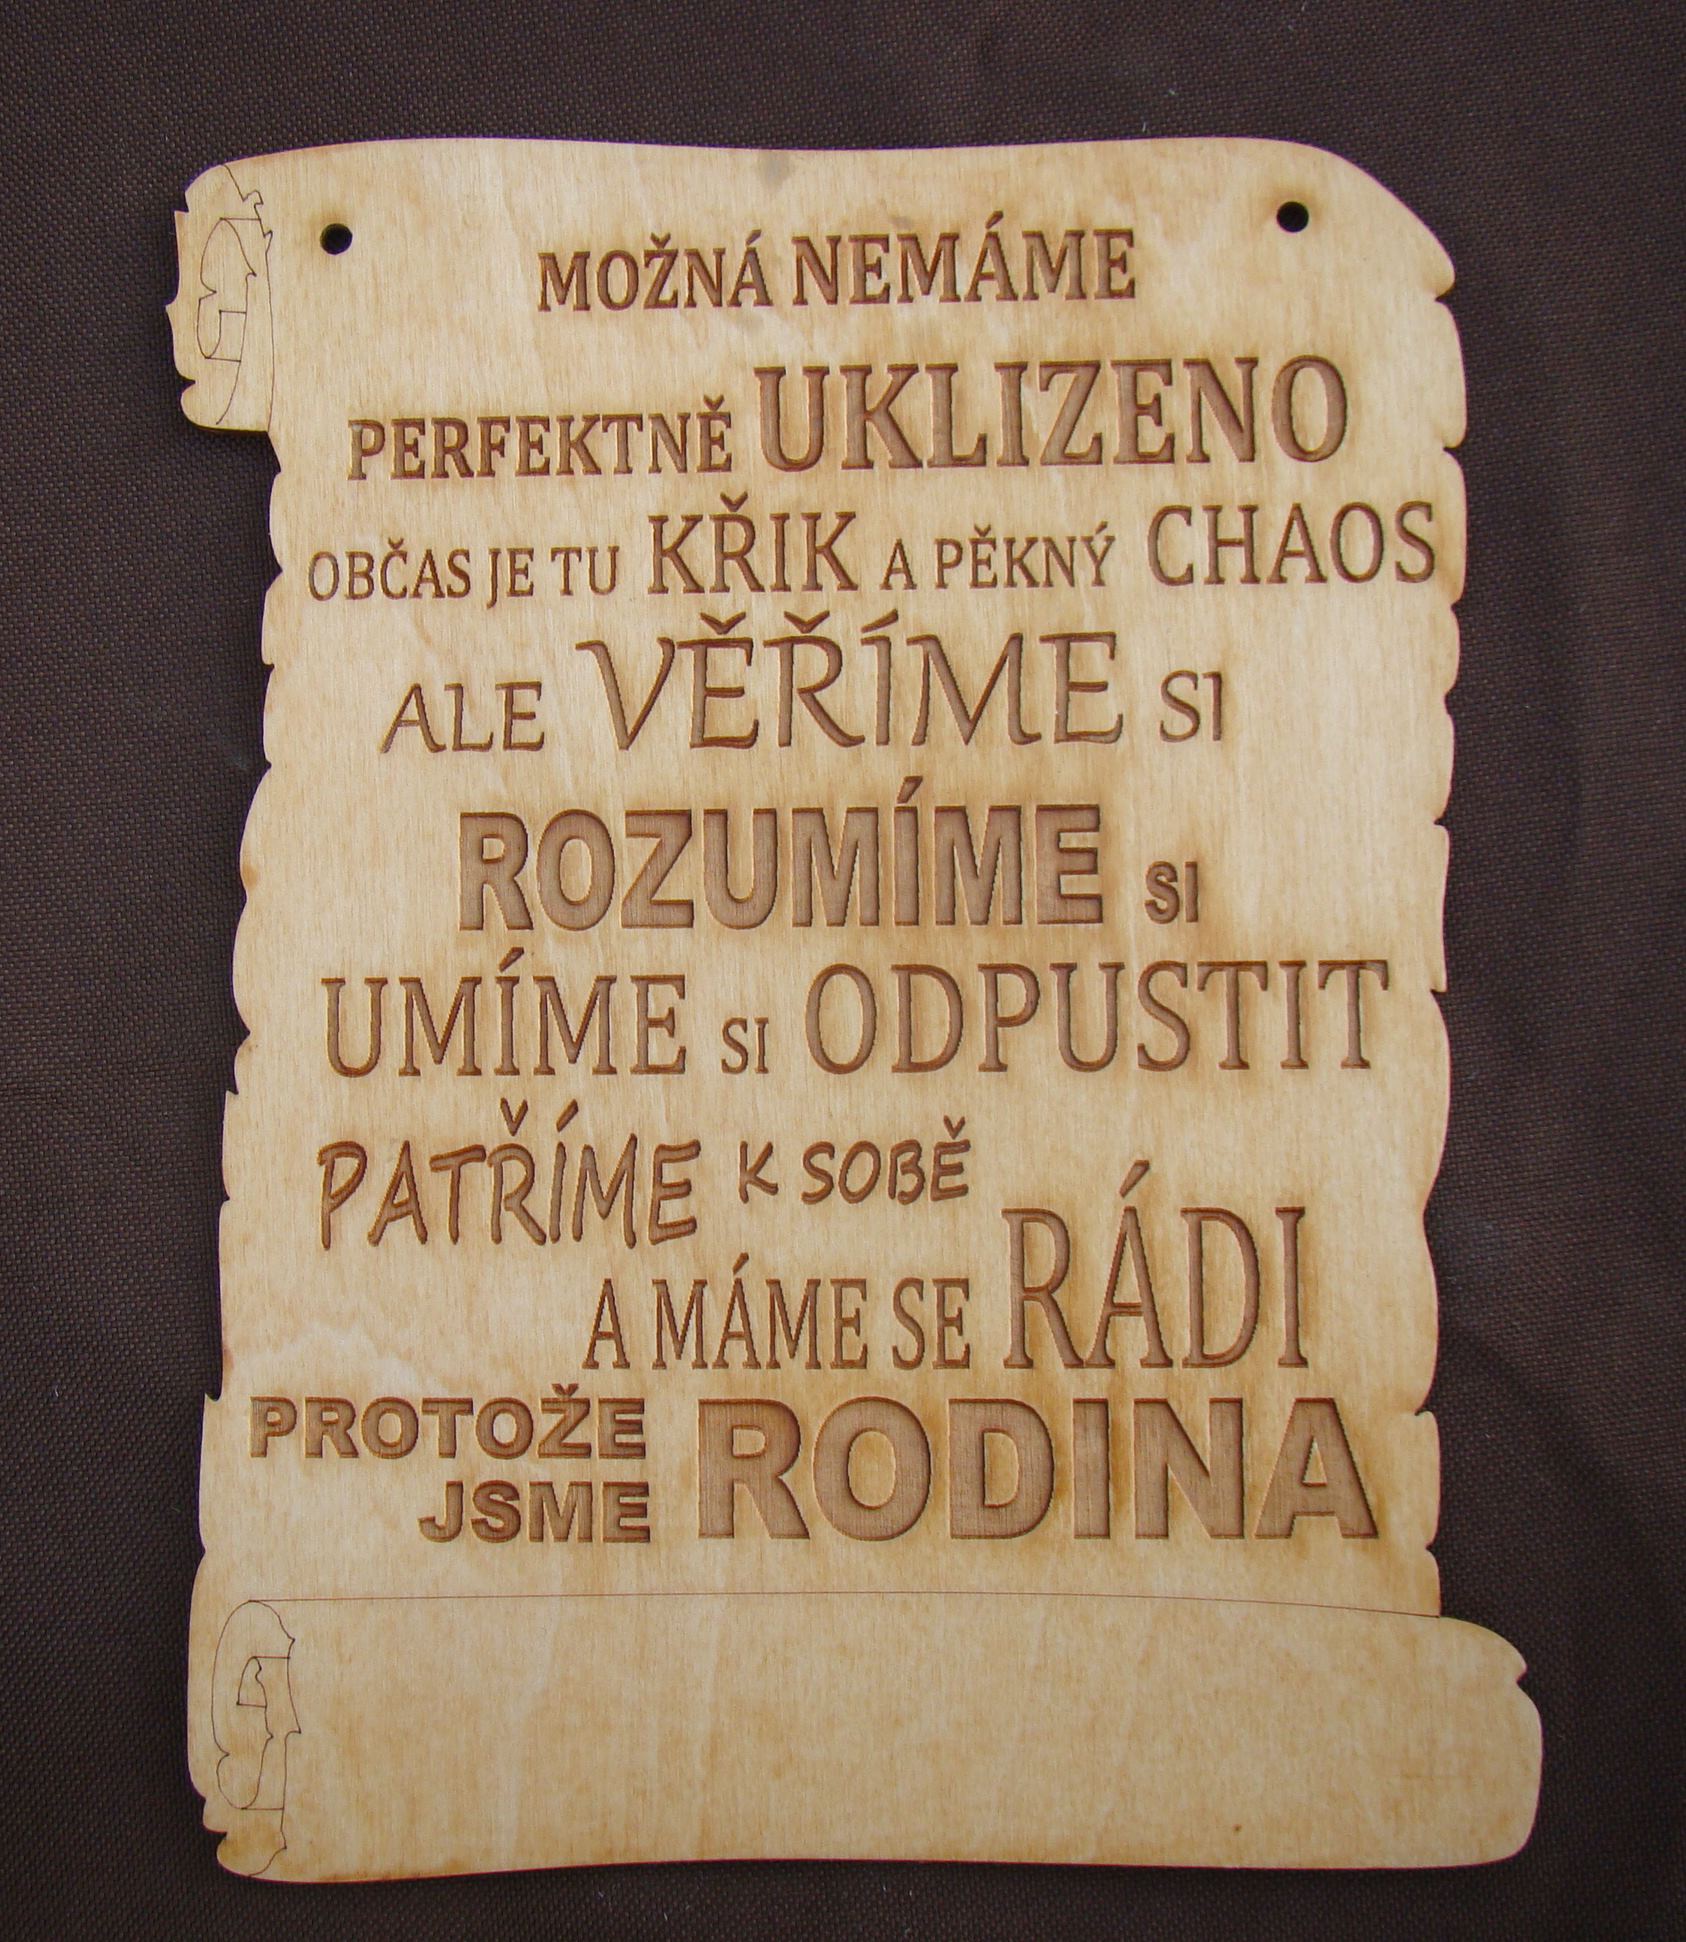 MOŽNÁ NEMÁME
PERFEKTNĚ UKLIZENO
OBČAS JE TU KŘIK A PĚKNÝ CHAOS
ALE VĚŘÍME SI
ROZUMÍME SI
UMÍME SI ODPUSTIT
PATŘÍME K SOBĚ
A MÁME SE RÁDI
PROTOŽE
JSME RODINA